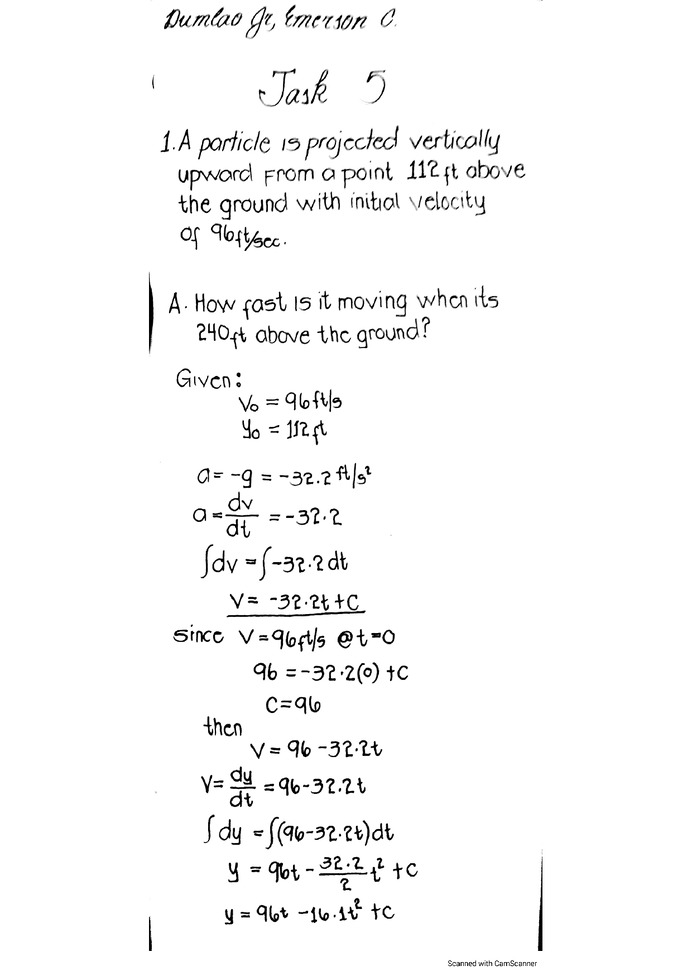 Dumlao Jr, Emerson C.
Task 5
1. A particle is projected vertically
upward from a point 112 ft above
the ground with initial velocity
of 96 ft/sec.
A. How fast is it moving when its
240 ft above the ground?
Given:
V₀ = 96 ft/s
y₀ = 112 ft
a = -g = -32.2 ft/s²
a = dv/dt = -32.2
∫dv = ∫-32.2 dt
V = -32.2t + C
since V = 96 ft/s @ t=0
96 = -32.2(0) + C
C = 96
then
V = 96 - 32.2t
V = dy/dt = 96 - 32.2t
∫dy = ∫(96 - 32.2t)dt
y = 96t - 32.2/2 t² + C
y = 96t - 16.1t² + C
Scanned with CamScanner